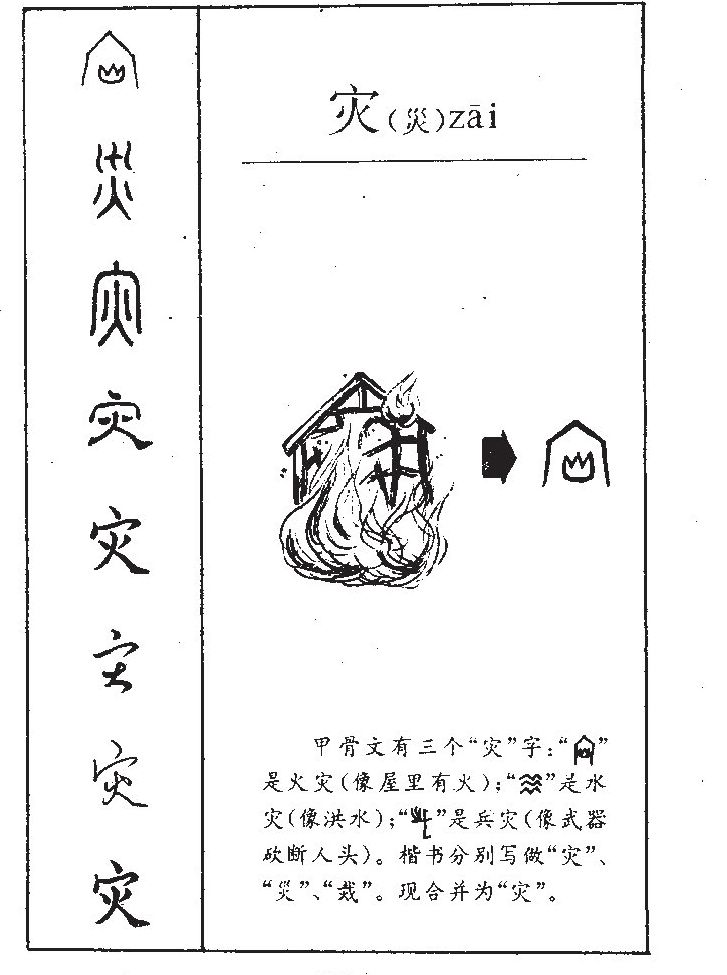 灾(災)zāi
甲骨文有三个“灾”字:“”
是火灾(像屋里有火);“”是水
灾(像洪水);“”是兵灾(像武器
砍断人头)。楷书分别写做“灾”、
“災”、“烖”。现合并为“灾”。
災
灾
灾
灾
灾
灾
灾